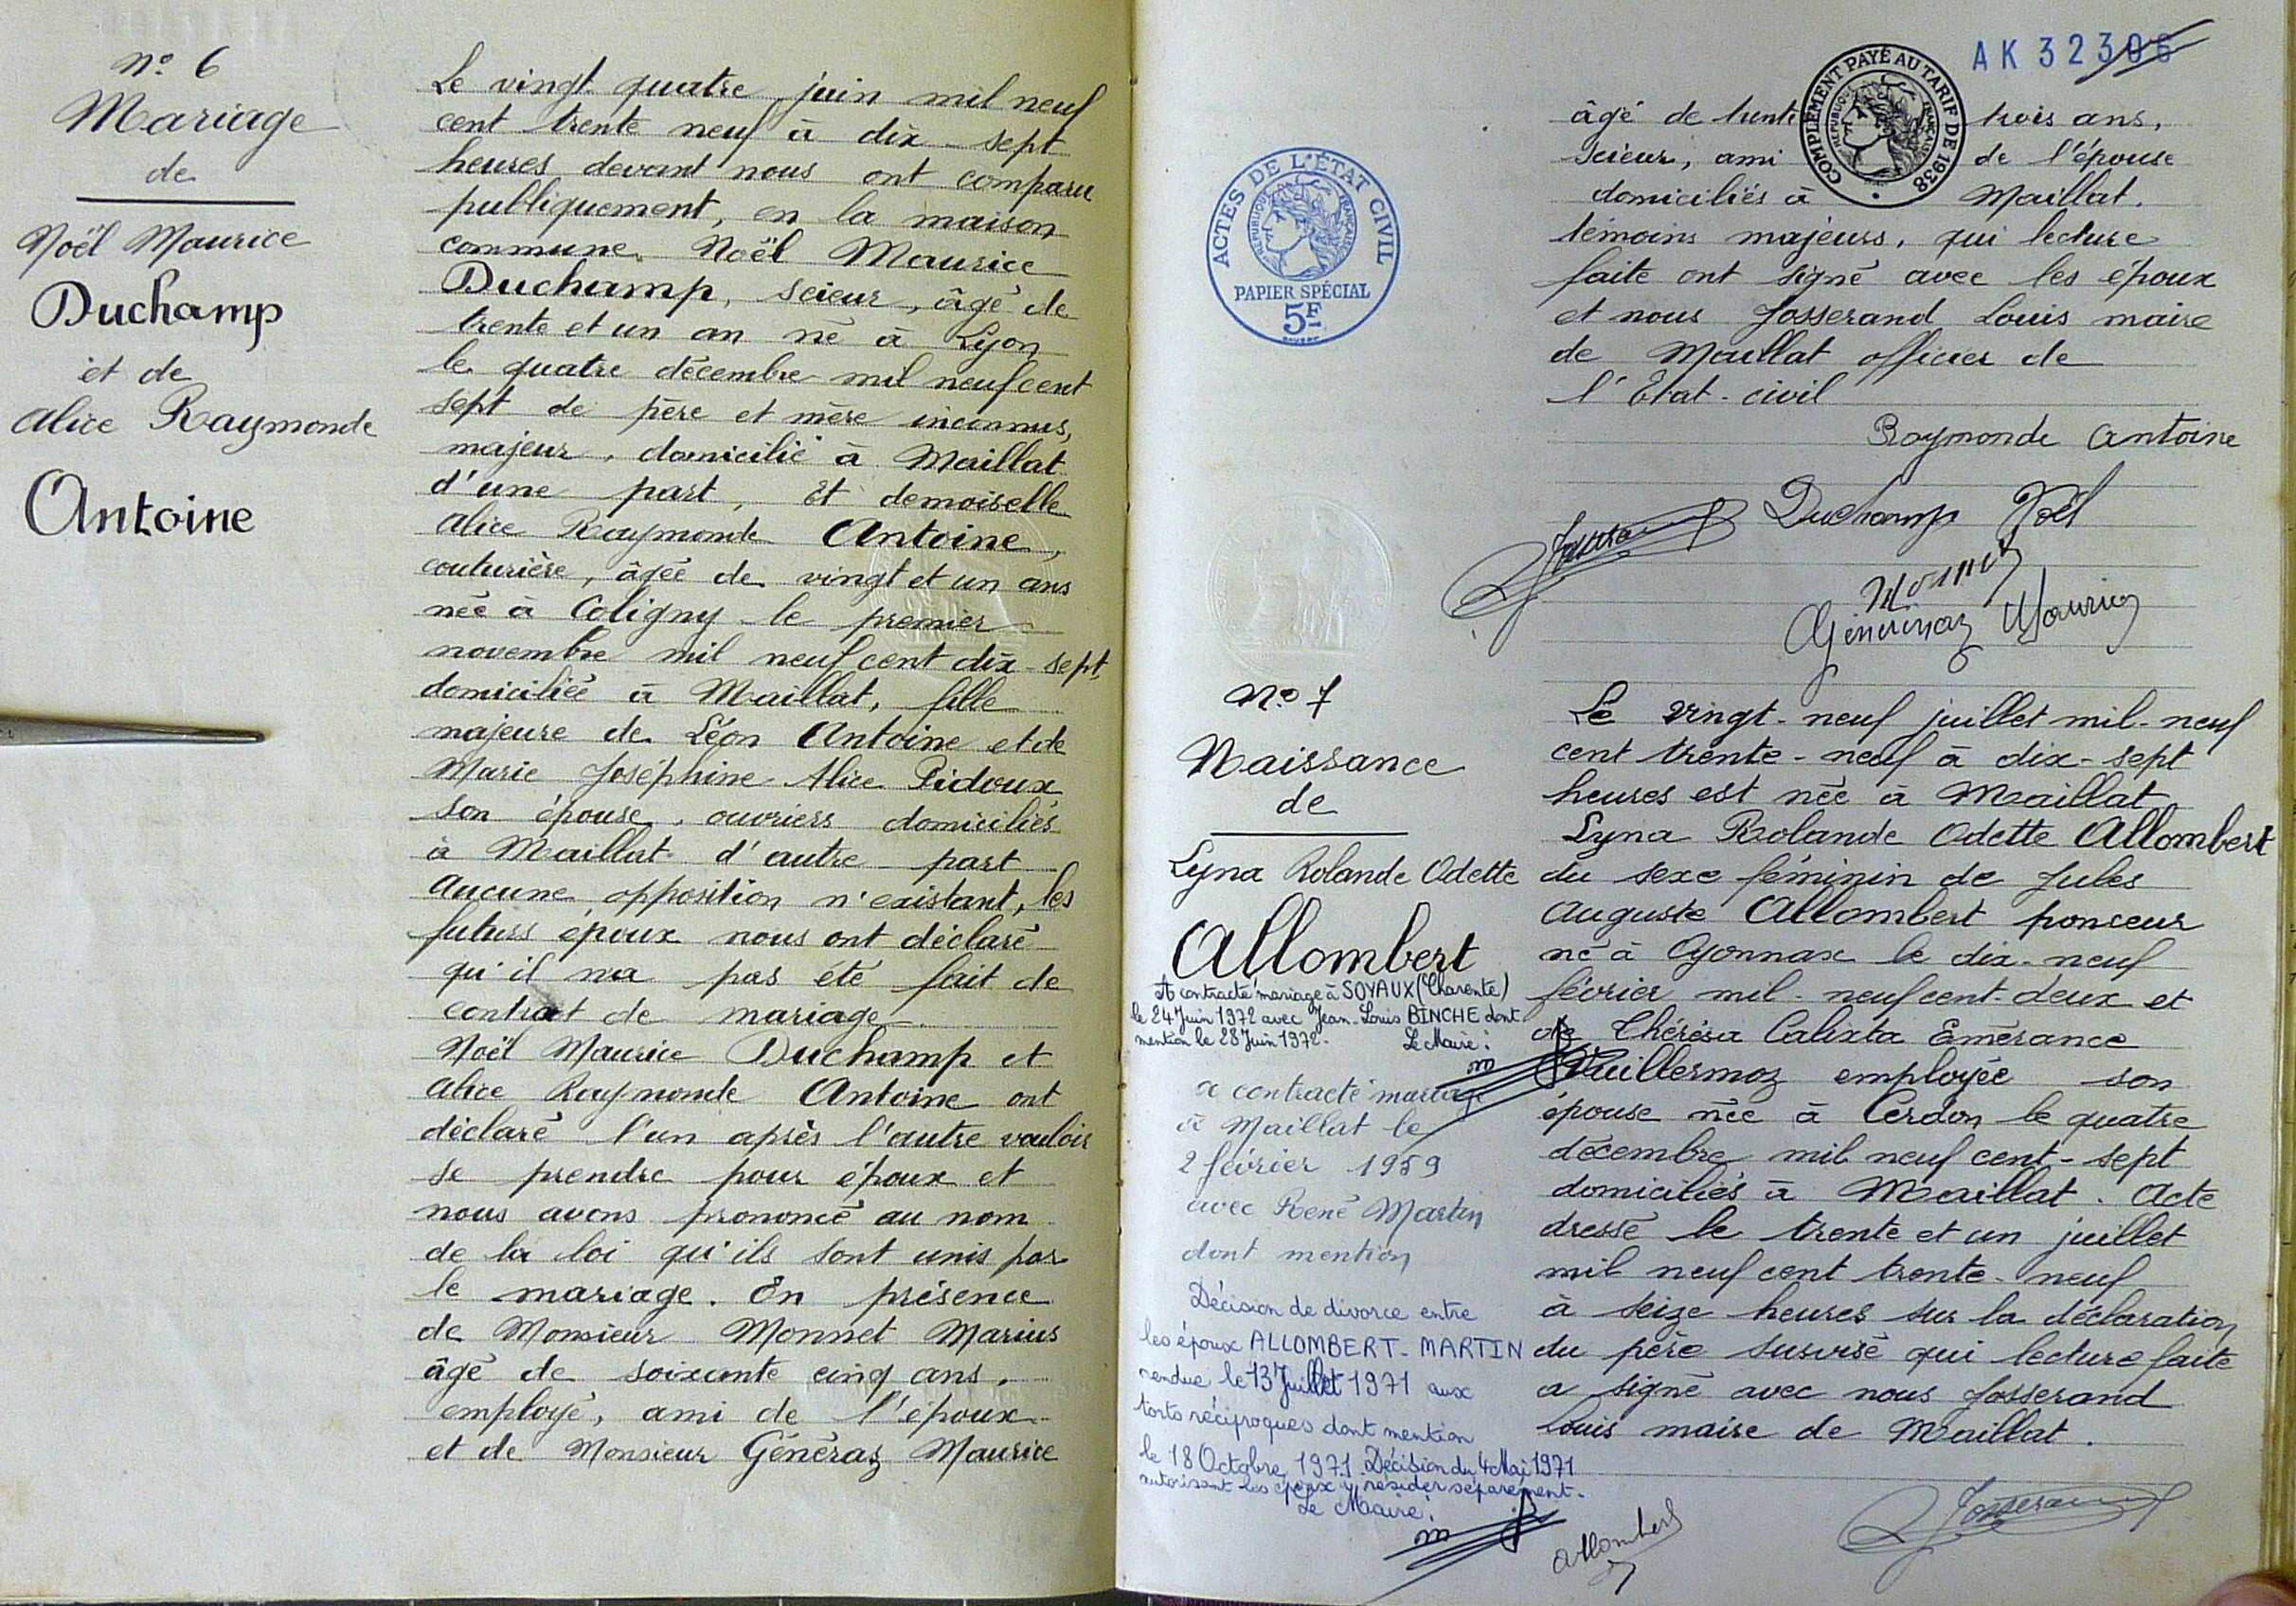 n° 6
Mariage
de
Noël Maurice
Duchamp
et de
Alice Raymonde
Antoine
Le vingt quatre juin mil neuf
cent trente neuf à dix-sept
heures devant nous ont comparu
publiquement, en la maison
commune. Noël Maurice
Duchamp, scieur, âgé de
trente et un an né à Lyon
le quatre décembre mil neuf cent
sept de père et mère inconnus,
majeur, domicilié à Maillat
d'une part, Et demoiselle
Alice Raymonde Antoine,
couturière, âgée de vingt et un ans
née à Coligny le premier
novembre mil neuf cent dix-sept
domiciliée à Maillat, fille
majeure de Léon Antoine et de
Marie Joséphine Alice Pidoux
son épouse, ouvriers domiciliés
à Maillat d'autre part
Aucune opposition n'existant, les
futurs époux nous ont déclaré
qu'il na pas été fait de
contrat de mariage.
Noël Maurice Duchamp et
Alice Raymonde Antoine ont
déclaré l'un après l'autre vouloir
se prendre pour époux et
nous avons prononcé au nom
de la loi qu'ils sont unis par
le mariage. En présence
de Monsieur Monnet Marius
âgé de soixante cinq ans,
employé, ami de l'époux
et de Monsieur Généraz Maurice
AK 32306
ACTES DE L'ÉTAT CIVIL
RÉPUBLIQUE FRANÇAISE
PAPIER SPÉCIAL
5F
COMPLÉMENT PAYÉ AU TARIF DE 1938
RÉPUBLIQUE FRANÇAISE
âgé de trente trois ans,
scieur, ami de l'épouse
domiciliés à Maillat.
témoins majeurs, qui lecture
faite ont signé avec les époux
et nous Josserand Louis maire
de Maillat officier de
l'Etat-civil
Raymonde Antoine
Duchamp Noël
Maurice
n° 7
Naissance
de
Lyna Rolande Odette
Allombert
A contracté mariage à SOYAUX (Charente)
le 24 Juin 1972 avec Jean-Louis BINCHE dont
mention le 28 Juin 1972. Le Maire:
a contracté mariage
à Maillat le
2 février 1959
avec René Martin
dont mention
Décision de divorce entre
les époux ALLOMBERT-MARTIN
rendue le 13 Juillet 1971 aux
torts réciproques dont mention
le 18 Octobre 1971. Décision du 4 Mai 1971
autorisant les époux à résider séparément.
Le Maire:
Le vingt-neuf juillet mil-neuf
cent trente-neuf à dix-sept
heures est née à Maillat
Lyna Rolande Odette Allombert
du sexe féminin de Jules
Auguste Allombert ponceur
né à Oyonnax le dix-neuf
février mil-neuf cent-deux et
de Thérésa Calixta Emérance
Vuillermoz employée son
épouse née à Cerdon le quatre
décembre mil neuf cent-sept
domiciliés à Maillat. Acte
dressé le trente et un juillet
mil neuf cent trente-neuf
à seize heures sur la déclaration
du père susvisé qui lecture faite
a signé avec nous Josserand
Louis maire de Maillat.
Allombert
Josserand